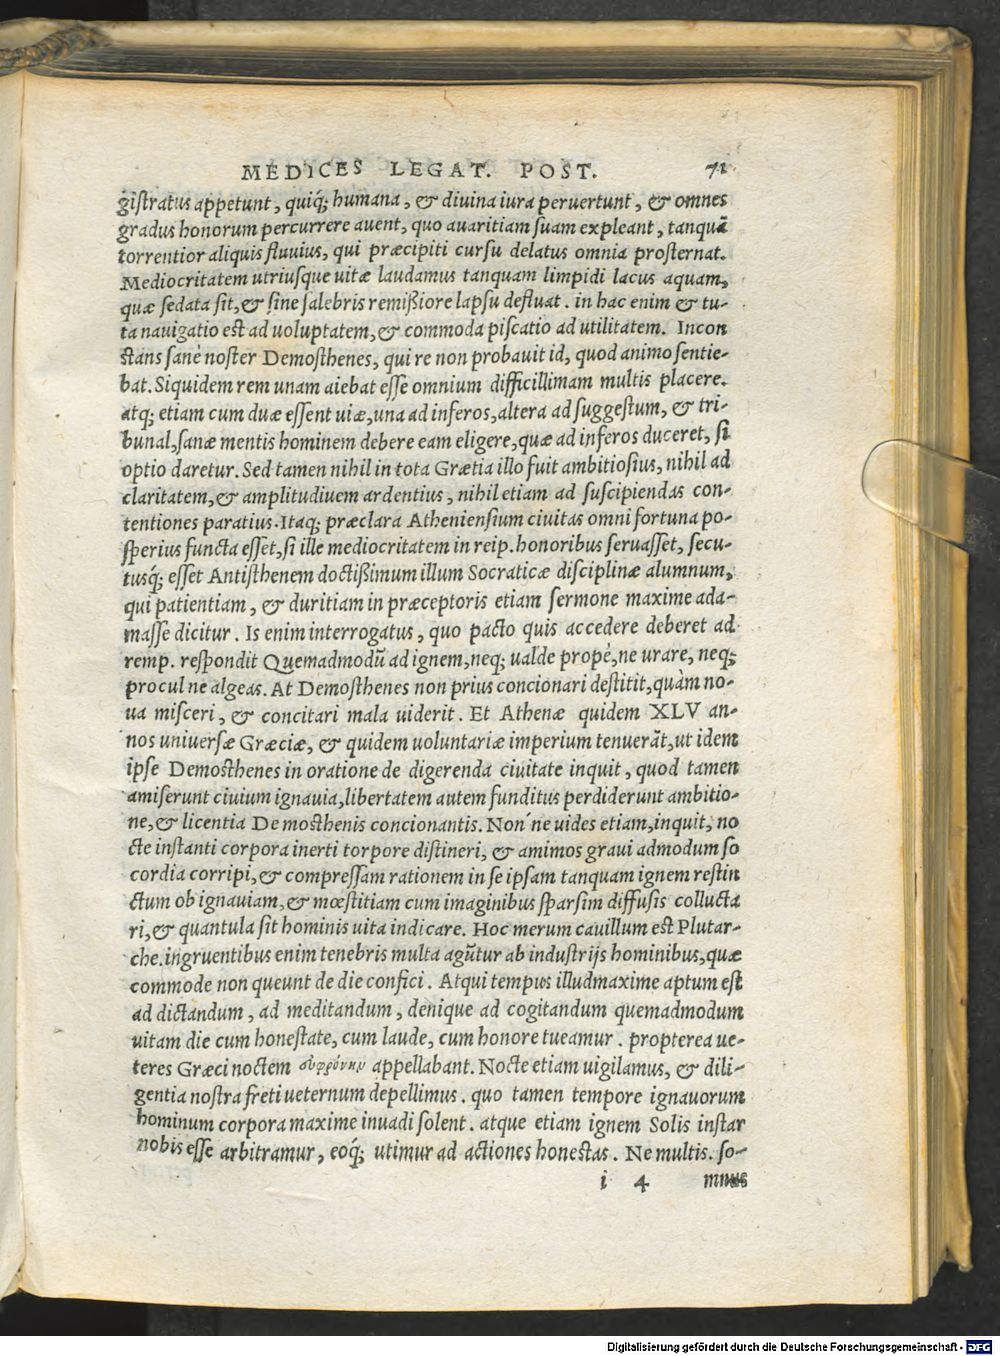 MEDICES LEGAT. POST. 71
gistratus appetunt, quiq; humana, & diuina iura peruertunt, & omnes
gradus honorum percurrere auent, quo auaritiam suam expleant, tanquā
torrentior aliquis fluuius, qui præcipiti cursu delatus omnia prosternat.
Mediocritatem utriusque uitæ laudamus tanquam limpidi lacus aquam,
quæ sedata sit, & sine salebris remißiore lapsu defluat. in hac enim & tu-
ta nauigatio est ad uoluptatem, & commoda piscatio ad utilitatem. Incon
stans sanè noster Demosthenes, qui re non probauit id, quod animo sentie-
bat. Siquidem rem unam aiebat esse omnium difficillimam multis placere.
atq; etiam cum duæ essent uiæ, una ad inferos, altera ad suggestum, & tri-
bunal, sanæ mentis hominem debere eam eligere, quæ ad inferos duceret, si
optio daretur. Sed tamen nihil in tota Grætia illo fuit ambitiosius, nihil ad
claritatem, & amplitudiuem ardentius, nihil etiam ad suscipiendas con-
tentiones paratius. Itaq; præclara Atheniensium ciuitas omni fortuna po-
sperius functa esset, si ille mediocritatem in reip. honoribus seruasset, secu-
tusq́; esset Antisthenem doctißimum illum Socraticæ disciplinæ alumnum,
qui patientiam, & duritiam in præceptoris etiam sermone maxime ada-
masse dicitur. Is enim interrogatus, quo pacto quis accedere deberet ad
remp. respondit Quemadmodū ad ignem, neq; ualde propè, ne urare, neq;
procul ne algeas. At Demosthenes non prius concionari destitit, quàm no-
ua misceri, & concitari mala uiderit. Et Athenæ quidem XLV an-
nos uniuersæ Græciæ, & quidem uoluntariæ imperium tenuerāt, ut idem
ipse Demosthenes in oratione de digerenda ciuitate inquit, quod tamen
amiserunt ciuium ignauia, libertatem autem funditus perdiderunt ambitio-
ne, & licentia Demosthenis concionantis. Non´ne uides etiam, inquit, no
cte instanti corpora inerti torpore distineri, & amimos graui admodum so
cordia corripi, & compressam rationem in se ipsam tanquam ignem restin
ctum ob ignauiam, & mœstitiam cum imaginibus sparsim diffusis collucta
ri, & quantula sit hominis uita indicare. Hoc merum cauillum est Plutar-
che. ingruentibus enim tenebris multa agūtur ab industrijs hominibus, quæ
commode non queunt de die confici. Atqui tempus illud maxime aptum est
ad dictandum, ad meditandum, denique ad cogitandum quemadmodum
uitam die cum honestate, cum laude, cum honore tueamur. propterea ue-
teres Græci noctem appellabant. Nocte etiam uigilamus, & dili-
gentia nostra freti ueternum depellimus. quo tamen tempore ignauorum
hominum corpora maxime inuadi solent. atque etiam ignem Solis instar
nobis esse arbitramur, eoq́; utimur ad actiones honestas. Ne multis. so-
i 4 mnus
Digitalisierung gefördert durch die Deutsche Forschungsgemeinschaft - DFG